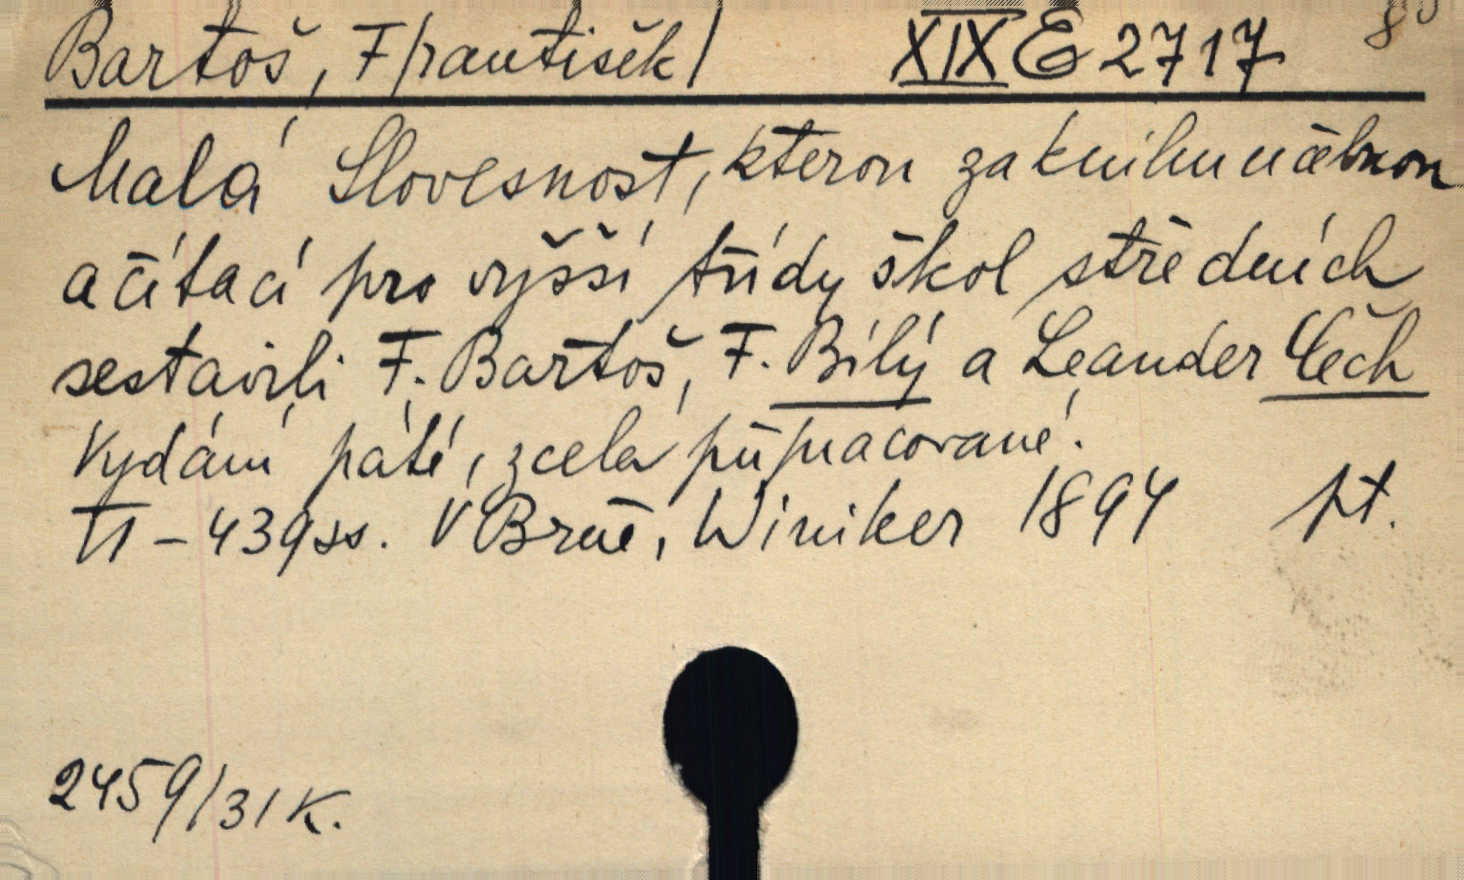 Bartoš, F/rantišek/ XIX E 2717 8°
Malá Slovesnost, kterou za knihu učebnou
a čítací pro vyšší třídy škol středních
sestavili F. Bartoš, F. Bílý a Leander Čech
Vydání páté, zcela přepracované.
VI - 439 ss. V Brně, Winiker 1894 pt.
2459/31 K.